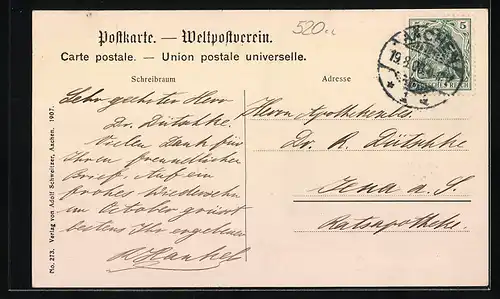 520.-
Postkarte. — Weltpostverein.
Carte postale. — Union postale universelle.
Schreibraum
Adresse
5
AACHEN
19.8
1 d
Sehr geehrter Herr
Dr. Dütschke,
Vielen Dank für
Ihren freundlichen
Brief. Auf ein
frohes Wiedersehn
im Oktober grüsst
bestens Ihr ergebener
Hankel
Herrn
Dr. R. Dütschke
Jena a. S.
Ratsapotheke.
No. 273. Verlag von Adolf Schweitzer, Aachen. 1907.